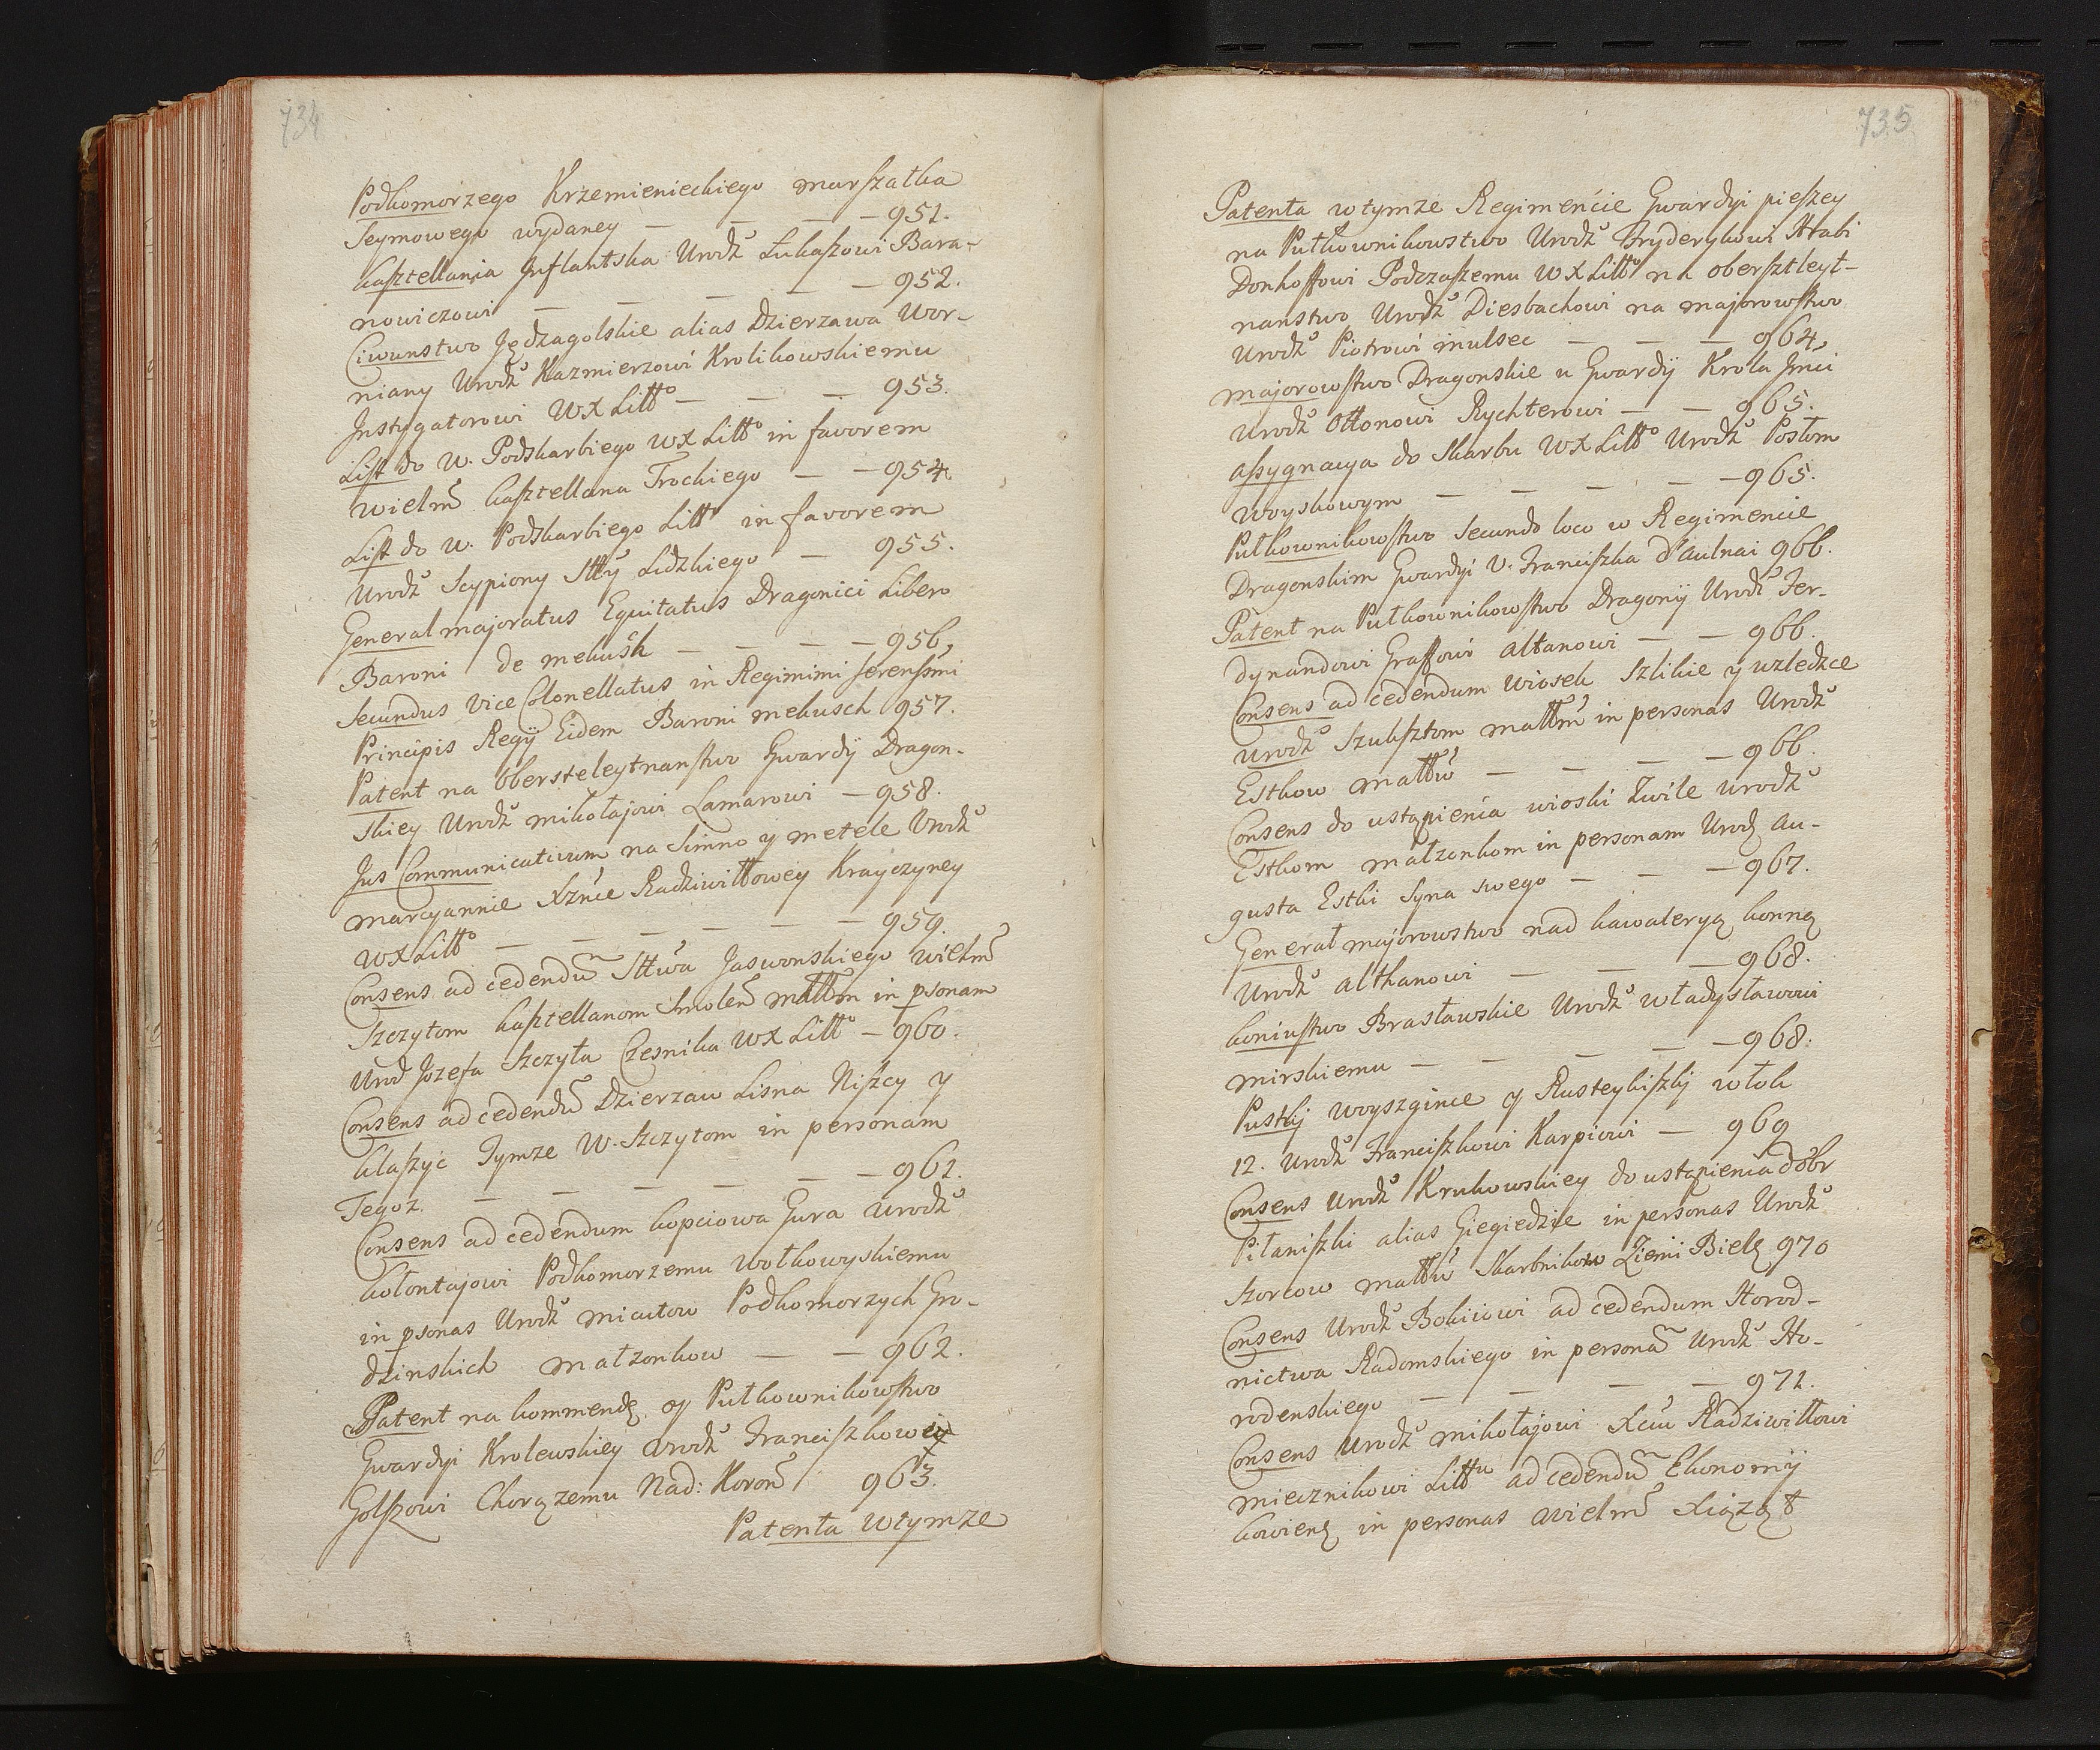 734
Podkomorzego Krzemienieckiego marszałka
Seymowego wydaney — — — — 951.
kasztellania Inflantska Urodź Łukaszowi Bara-
nowiczowi — — — — — 952.
Ciwunstwo Jędzagolskie alias Dzierzawa Wor-
niany Urodź Kazmierzowi Krolikowskiemu
Instygatorowi WX Litto — — — 953.
List do W. Podskarbiego WX Litto in favorem
wielm kasztellana Trockiego — — 954.
List do W. Podskarbiego Litt in favorem
Urodź Scypiony Stty Lidzkiego — 955.
General majoratus Equitatus Dragonici Libero
Baroni de mekush — — — — 956,
Secundus Vice Colonellatus in Regimimi serenssmi
Principis Regÿ Eidem Baroni mekusch 957.
Patent na obersteleytnanstwo Gwardÿ Dragon-
skiey Urodź mikołajowi Lamarowi — 958.
Jus Communicativum na Simno y metele Urodź
marcyannie Xznie Radziwiłłowey Krayczyney
WX Litto — — — — — — 959.
Consens ad cedendũ Sttwa Jaswonskiego wielm
Szczytom kasztellanom Smolen małłm in psonam
Urod Jozefa Szczyta Czesnika WX Litto — 960.
Consens ad cedendũ Dzierzaw Lisna Niszcy y
klaszyc Tymze W. Szczytom in personam
Tegoz. — — — — — — 961.
Consens ad cedendum kopciowa Gura Urodź
kołontajowi Podkomorzemu wołkowyskiemu
in psonas Urodź micutow Podkomorzych Gro-
dzinskich małzonkow — — 962.
Patent na kommendę y Pułkownikowstwo
Gwardyi Krolewskiey Urodź Franciszkowi
Golszowi Chorązemu Nad: Koron 963.
Patenta wtymze
735
Patenta wtymze Regimencie Gwardyi pieszey
na Pułkownikowstwo Urodź Fryderykowi Hrabi
Donhoffowi Podczaszemu WX Litto na obersztleyt-
nanstwo Urodź Diesbachowi na majorowstwo
Urodź Piotrowi mulsec — — — 964,
majorowstwo Dragonskie u Gwardÿ Krola Jmci
Urodź Ottonowi Rychterowi — — 965.
assygnacya do Skarbu WX Litto Urodź Posłom
woyskowym — — — — — 965.
Pułkownikowstwo Secundo loco w Regimencie
Dragonskim Gwardyi U. Franciszka d'Aulnai 966.
Patent na Pułkownikowstwo Dragonÿ Urodź Fer-
dynandowi Graffowi altanowi — — 966.
Consens ad cedendum wiosek Szlikie y uzledzce
Urodź Szuksztom małłm in personas Urodź
Estkow małłw — — — — 966.
Consens do ustąpienia wioski Zwile urodź
Estkom małzonkom in personam Urodź Au-
gusta Estki Syna swego — — — 967.
Generał majorowstwo nad kawaleryą konną
Urodź althanowi — — — 968.
koniustwo Brasławskie Urodź władysławowi
mirskiemu — — — — — 968.
Pustkÿ woyszgince y Rusteykiszkÿ włok
12. Urodź Franciszkowi Karpiowi — 969
Consens Urodź Krukowskiey do ustąpienia dobr
Piłaniszki alias Giegiedzie in personas Urodź
Szorcow małłw Skarbnikow Ziemi Bielę 970
Consens Urodź Bokiiowi ad cedendum Horod-
nictwa Radomskiego in personã Urodź Ho-
rodenskiego — — — — 971.
Consens Urodź mikołajowi Xciu Radziwiłłowi
miecznikowi Litt ad cedendũ Ekonomÿ
kowienę in personas wielm Xiąząt